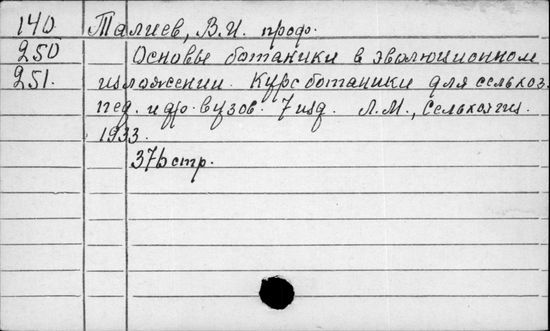 140 Талиев, В.И. проф.
250 Основы ботаники в эволюционном
251. изложении. Курс ботаники для сельхоз.
пед. и др. вузов. 7 изд. Л.М., Сельхозгиз.
1933.
376 стр.